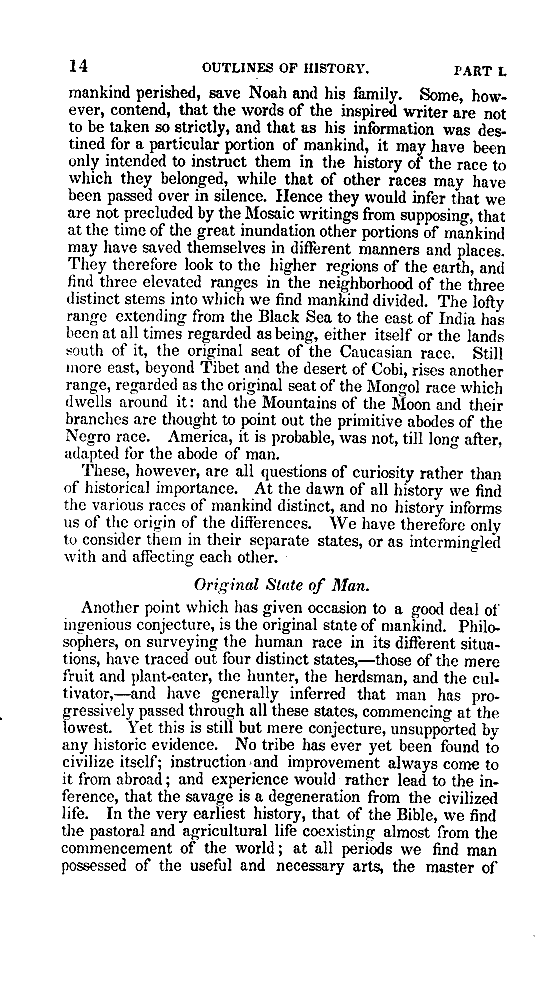 14 OUTLINES OF HISTORY. PART I.
mankind perished, save Noah and his family. Some, how-
ever, contend, that the words of the inspired writer are not
to be taken so strictly, and that as his information was des-
tined for a particular portion of mankind, it may have been
only intended to instruct them in the history of the race to
which they belonged, while that of other races may have
been passed over in silence. Hence they would infer that we
are not precluded by the Mosaic writings from supposing, that
at the time of the great inundation other portions of mankind
may have saved themselves in different manners and places.
They therefore look to the higher regions of the earth, and
find three elevated ranges in the neighborhood of the three
distinct stems into which we find mankind divided. The lofty
range extending from the Black Sea to the east of India has
been at all times regarded as being, either itself or the lands
south of it, the original seat of the Caucasian race. Still
more east, beyond Tibet and the desert of Cobi, rises another
range, regarded as the original seat of the Mongol race which
dwells around it: and the Mountains of the Moon and their
branches are thought to point out the primitive abodes of the
Negro race. America, it is probable, was not, till long after,
adapted for the abode of man.
These, however, are all questions of curiosity rather than
of historical importance. At the dawn of all history we find
the various races of mankind distinct, and no history informs
us of the origin of the differences. We have therefore only
to consider them in their separate states, or as intermingled
with and affecting each other.
Original State of Man.
Another point which has given occasion to a good deal of
ingenious conjecture, is the original state of mankind. Philo-
sophers, on surveying the human race in its different situa-
tions, have traced out four distinct states,—those of the mere
fruit and plant-eater, the hunter, the herdsman, and the cul-
tivator,—and have generally inferred that man has pro-
gressively passed through all these states, commencing at the
lowest. Yet this is still but mere conjecture, unsupported by
any historic evidence. No tribe has ever yet been found to
civilize itself; instruction and improvement always come to
it from abroad; and experience would rather lead to the in-
ference, that the savage is a degeneration from the civilized
life. In the very earliest history, that of the Bible, we find
the pastoral and agricultural life coexisting almost from the
commencement of the world; at all periods we find man
possessed of the useful and necessary arts, the master of